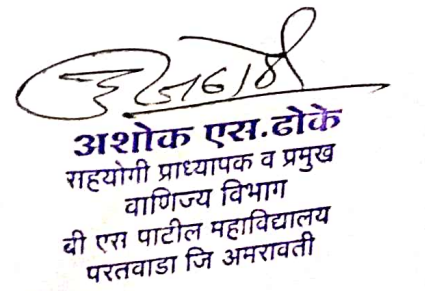 अशोक एस.ढोके
सहयोगी प्राध्यापक व प्रमुख
वाणिज्य विभाग
बी एस पाटील महाविद्यालय
परतवाडा जि अमरावती